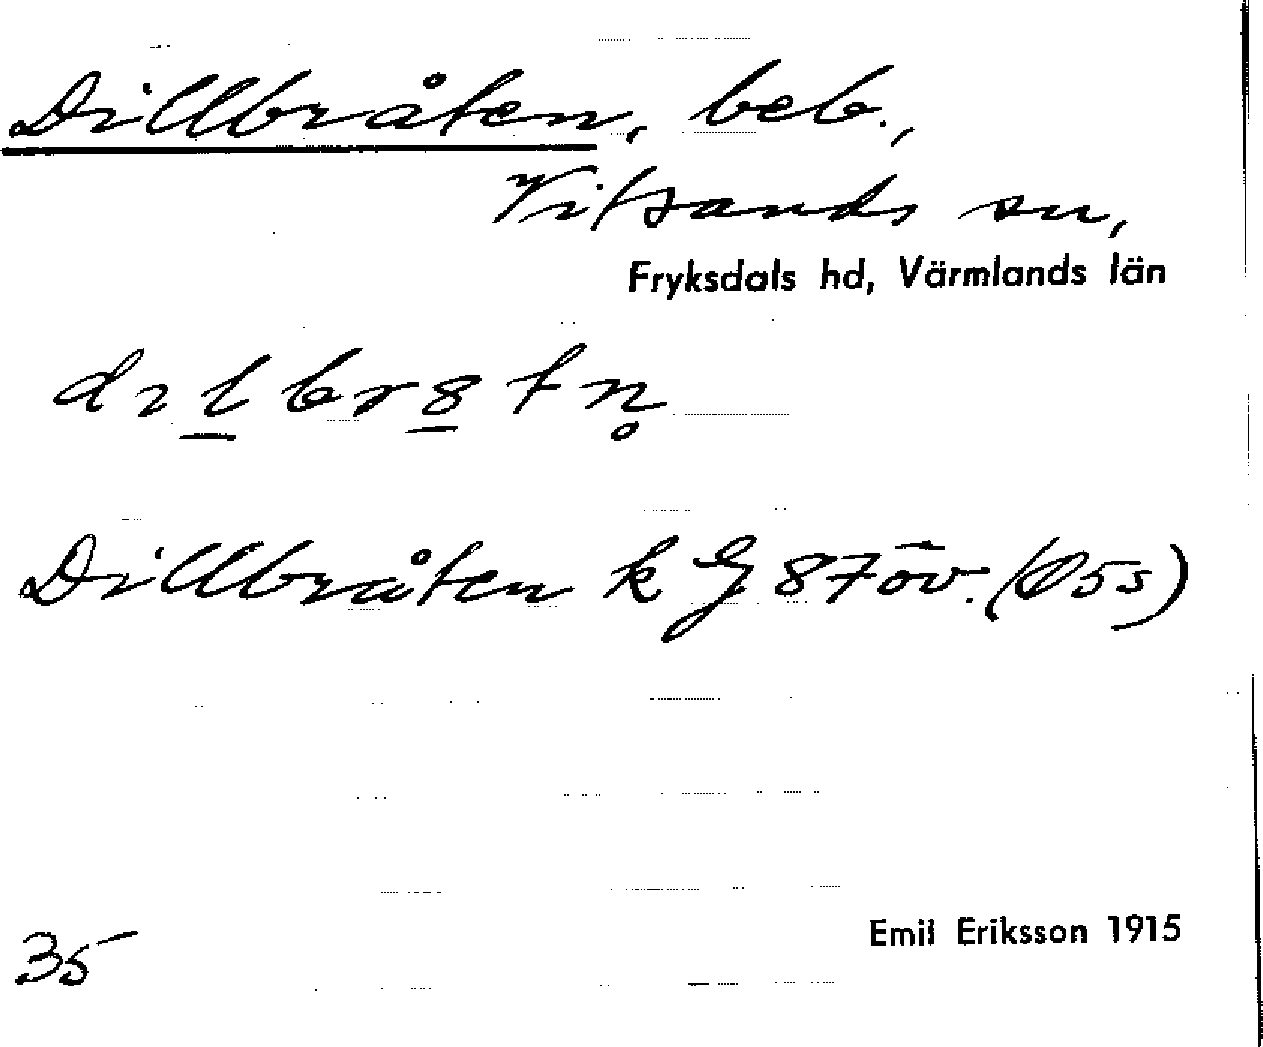 Dillbråten, beb.,
Vitsands sn,
Fryksdals hd, Värmlands län
Dillbråten k G 87 öv. (Ö5s)
35
Emil Eriksson 1915